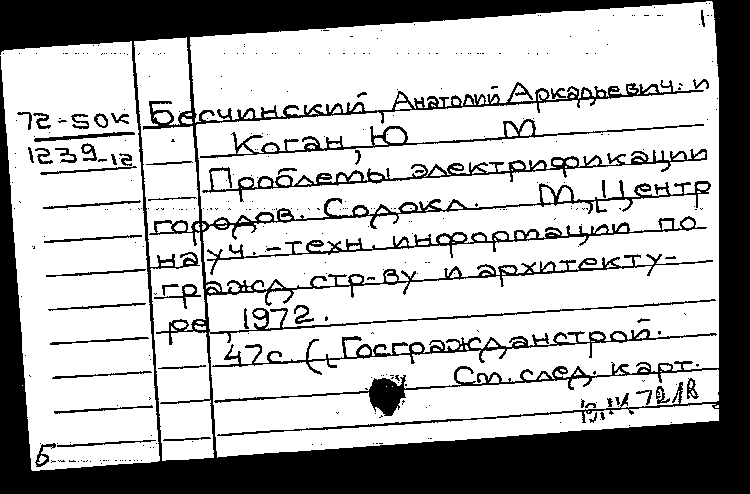 1
72-50к
1239-12
Бесчинский, Анатолий Аркадьевич. и
Коган, Ю М
Проблемы электрификации
городов. Содокл. М., Центр
науч.-техн. информации по
гражд. стр-ву и архитекту-
ре, 1972.
47с (Госгражданстрой.
См. след. карт.
72
Б